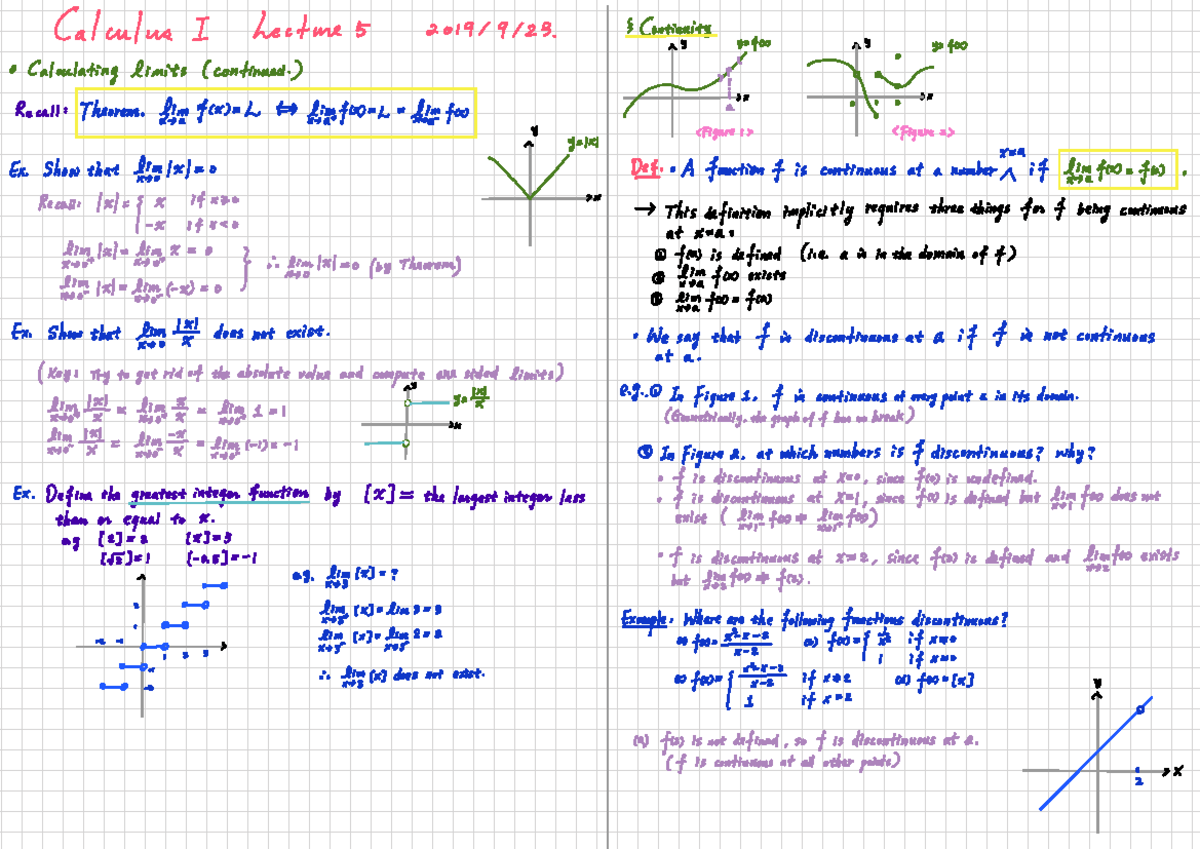 Calculus I Lecture 5 2019/9/25.
• Calculating limits (continued.)
Recall: Theorem. lim x→a f(x) = L ⟺ lim x→a⁺ f(x) = L = lim x→a⁻ f(x)
Ex. Show that lim x→0 |x| = 0
y
y=|x|
x
Recall: |x| = { x if x≥0
-x if x<0
lim x→0⁺ |x| = lim x→0⁺ x = 0
lim x→0⁻ |x| = lim x→0⁻ (-x) = 0
∴ lim x→0 |x| = 0 (by Theorem)
Ex. Show that lim x→0 |x|/x does not exist.
(Key: Try to get rid of the absolute value and compute one sided limits)
lim x→0⁺ |x|/x = lim x→0⁺ x/x = lim x→0⁺ 1 = 1
lim x→0⁻ |x|/x = lim x→0⁻ -x/x = lim x→0⁻ (-1) = -1
y
y=|x|/x
x
Ex. Define the greatest integer function by [x] = the largest integer less
than or equal to x.
e.g. [2]=2 [π]=3
[√2]=1 [-0.5]=-1
e.g. lim x→3 [x] = ?
lim x→3⁺ [x] = lim 3 = 3
lim x→3⁻ [x] = lim x→3⁻ 2 = 2
∴ lim x→3 [x] does not exist.
§ Continuity
y
y=f(x)
x
a
<Figure 1>
y
y=f(x)
x
<Figure 2>
Def. • A function f is continuous at a number x=a if lim x→a f(x) = f(a).
→ This definition implicitly requires three things for f being continuous
at x=a.
① f(a) is defined (i.e. a is in the domain of f)
② lim x→a f(x) exists
③ lim x→a f(x) = f(a)
• We say that f is discontinuous at a if f is not continuous
at a.
e.g. ① In Figure 1, f is continuous at every point a in its domain.
(Geometrically, the graph of f has no break)
② In Figure 2, at which numbers is f discontinuous? why?
• f is discontinuous at x=0, since f(0) is undefined.
• f is discontinuous at x=1, since f(1) is defined but lim x→1 f(x) does not
exist ( lim x→1⁺ f(x) ≠ lim x→1⁻ f(x))
• f is discontinuous at x=2, since f(2) is defined and lim x→2 f(x) exists
but lim x→2 f(x) ≠ f(2).
Example. Where are the following functions discontinuous?
(a) f(x) = x²-x-2/x-2 (b) f(x) = { 1/x² if x≠0
1 if x=0
(c) f(x) = { x²-x-2/x-2 if x≠2 (d) f(x) = [x]
1 if x=2
(a) f(2) is not defined, so f is discontinuous at 2.
(f is continuous at all other points)
y
x
2